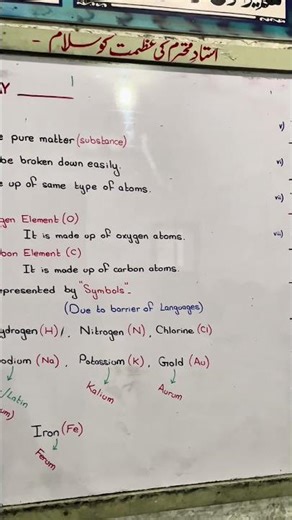 استاد محترم کی عظمت کو سلام -
v)
pure matter (substance)
be broken down easily.
vi)
up of same type of atoms.
vii)
gen Element (O)
viii)
It is made up of oxygen atoms.
bon Element (C)
It is made up of carbon atoms.
epresented by "Symbols".
(Due to barrier of Languages)
ydrogen (H), Nitrogen (N), Chlorine (Cl)
odium (Na), Potassium (K), Gold (Au)
/Latin
Kalium
Aurum
um)
Iron (Fe)
Ferum